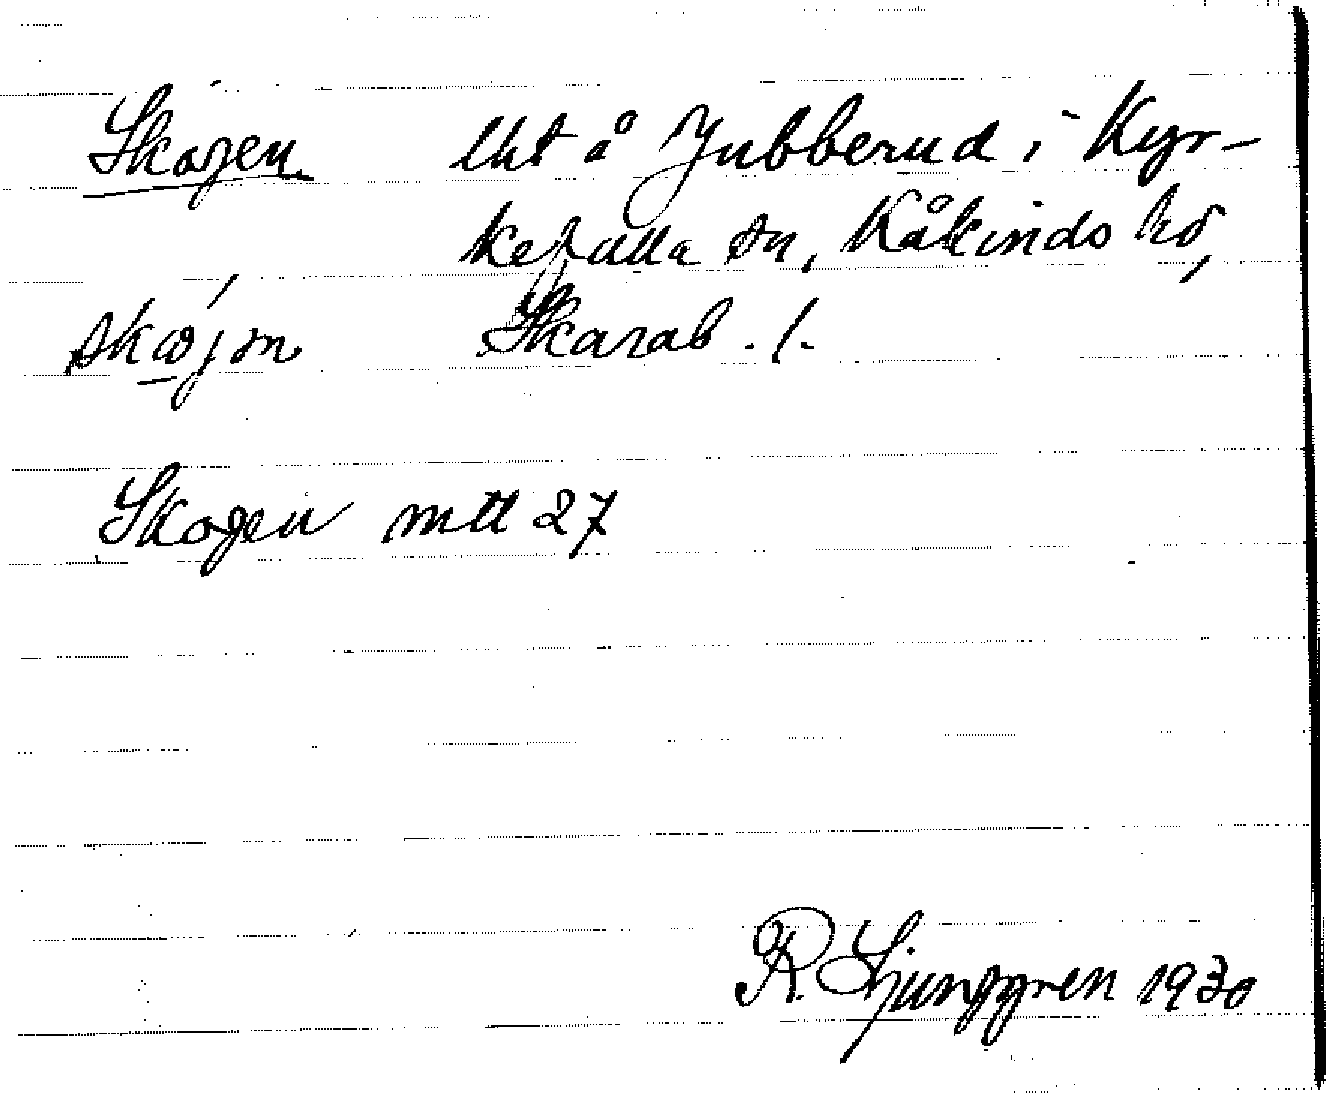 Skogen lht å Jubberud i Kyr-
kefalla sn, Kåkinds hd,
Skarab. l.
Skogen mtl 27
R. Ljunggren 1930